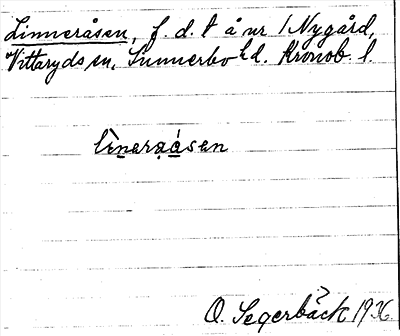 Linneråsen, f. d. t å nr 1 Nygård,
Vittaryds sn, Sunnerbo hd. Kronob. l.
lìneråsen
O. Segerbäck 1936.